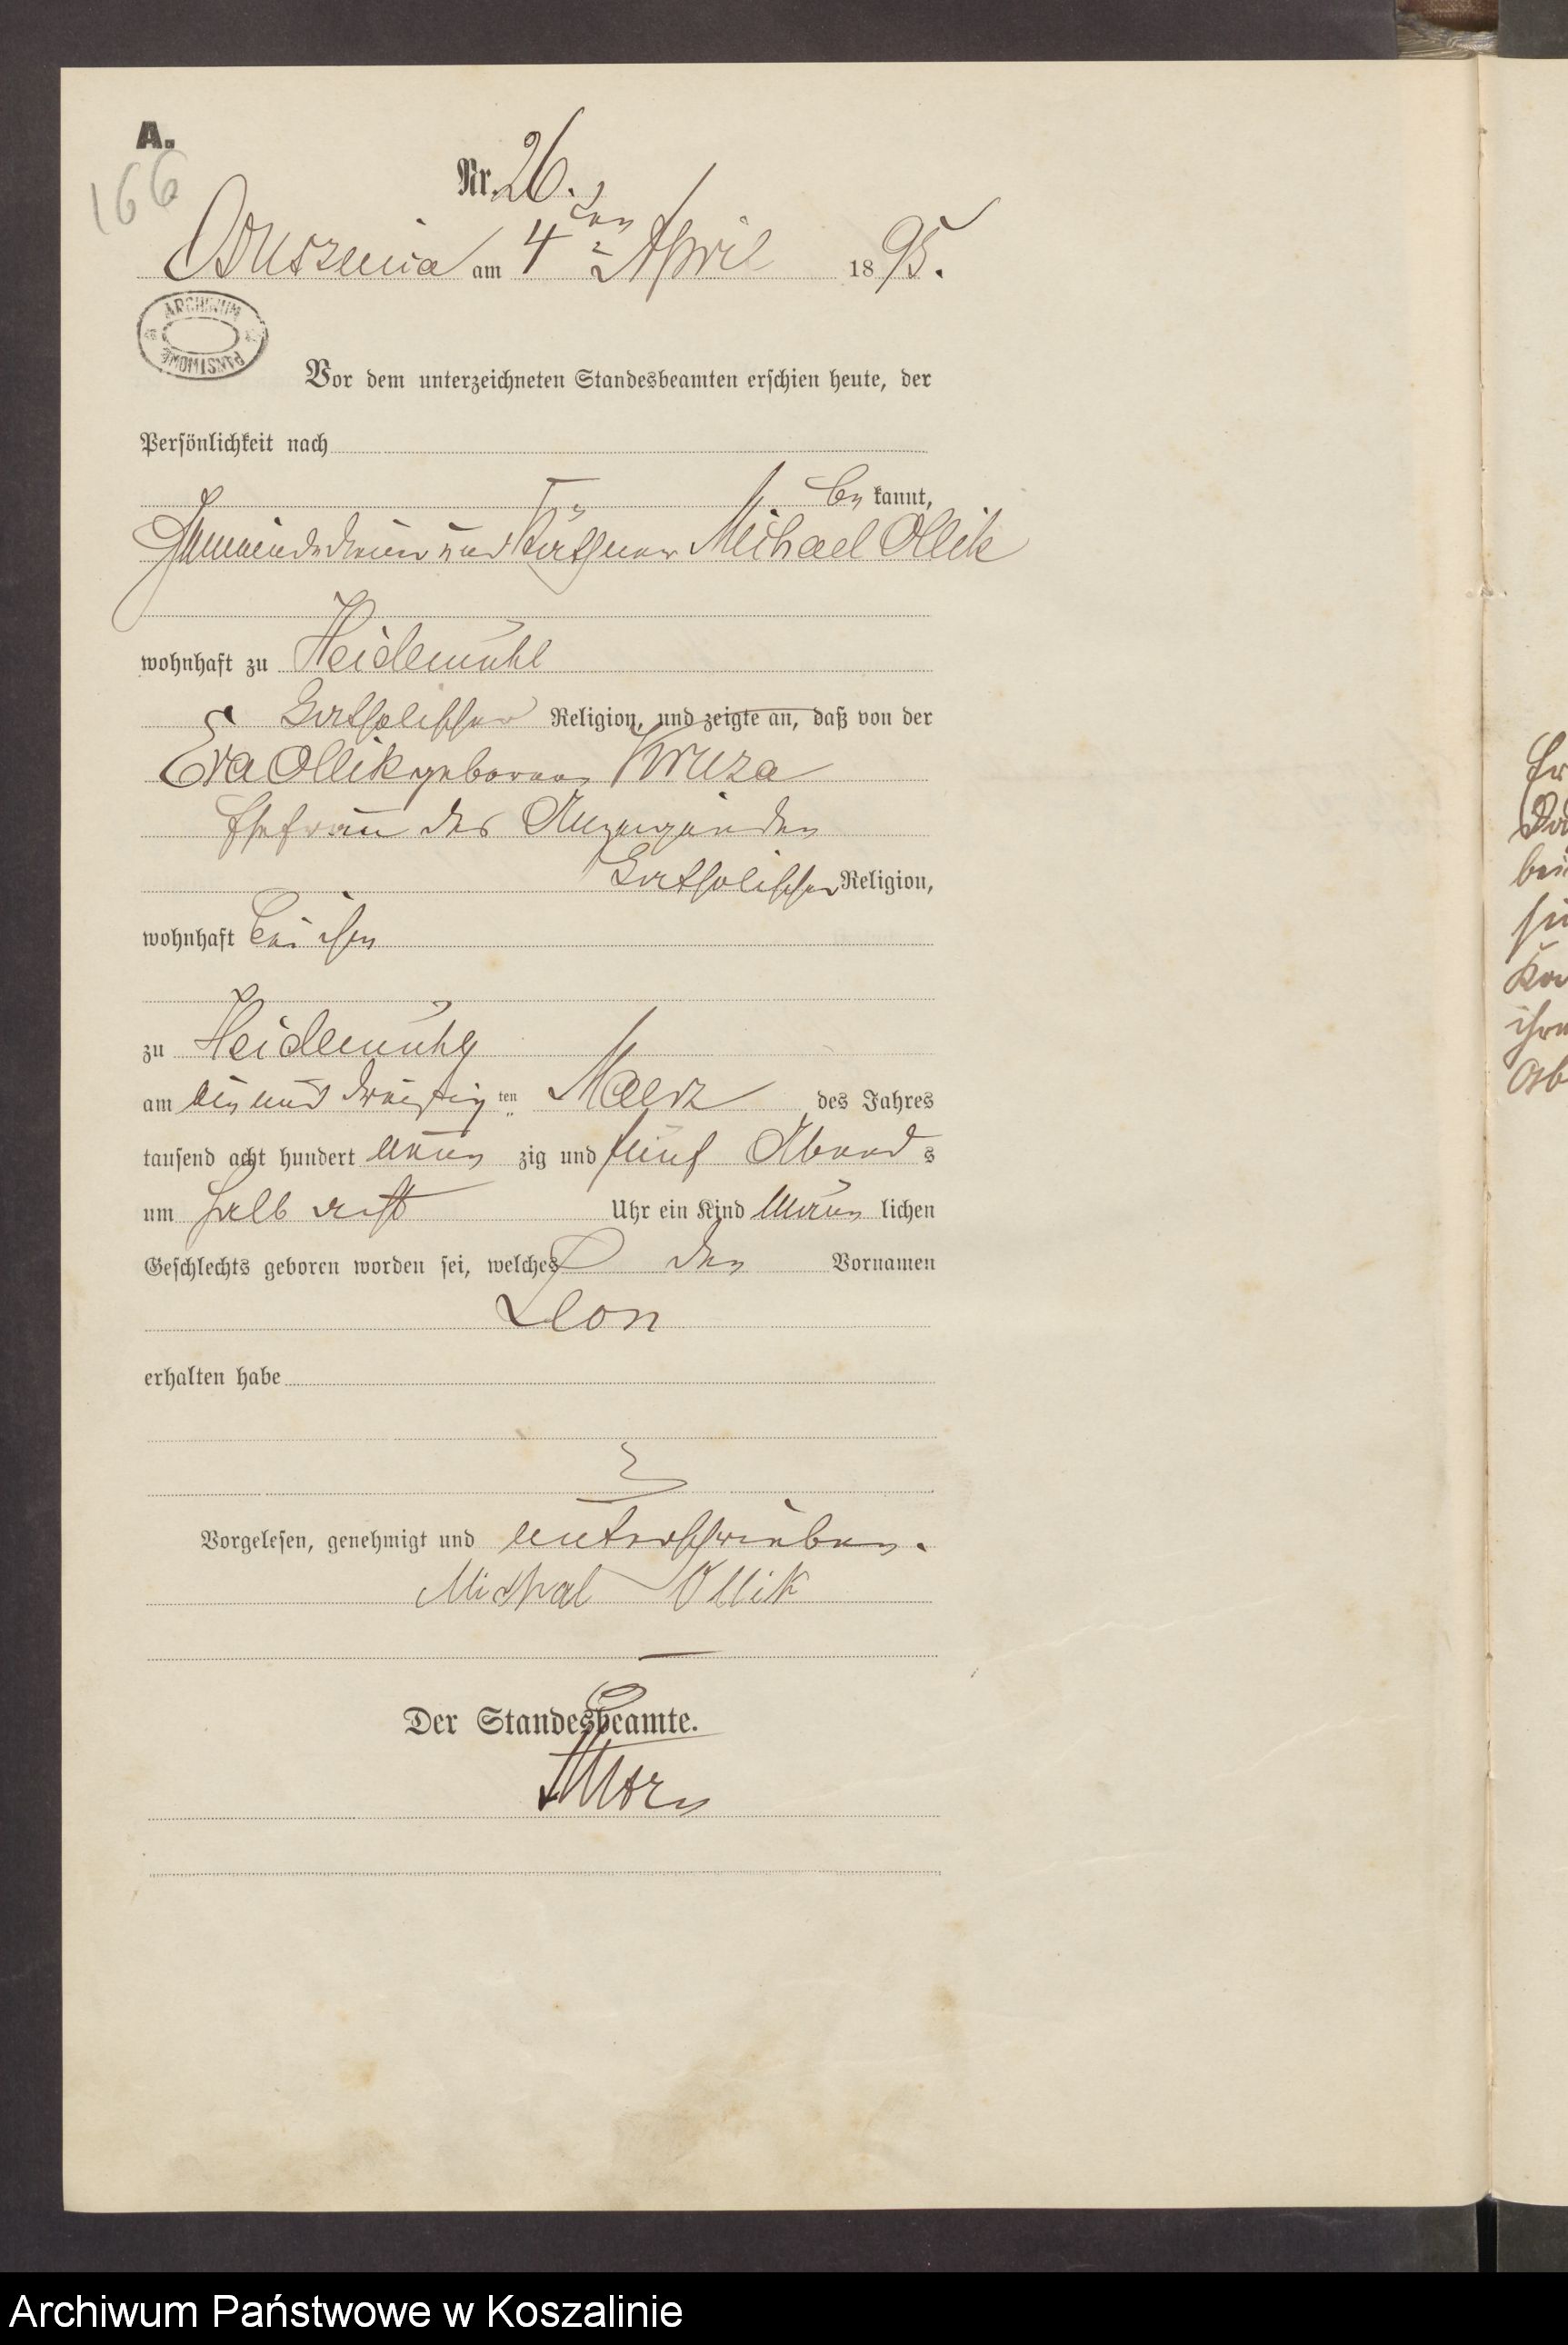 A.
166
Nr. 26.
Ossuszenia am 4ten April 1895.
ARCHIWUM PAŃSTWOWE
Vor dem unterzeichneten Standesbeamten erschien heute, der
Persönlichkeit nach
be kannt,
und Käthner Michael Ollik
wohnhaft zu Heidemühl
katholischer Religion, und zeigte an, daß von der
Eva Ollik geborenen Kruza
Ehefrau des Anzeigenden
katholischer Religion,
wohnhaft bei ihm
zu Heidemühl
am ein und dreißigten Maerz des Jahres
tausend acht hundert neun zig und fünf Abend s
um halb acht Uhr ein Kind männ lichen
Geschlechts geboren worden sei, welches den Vornamen
Leon
erhalten habe
Vorgelesen, genehmigt und unterschrieben.
Michal Ollik
Der Standesbeamte.
Archiwum Państwowe w Koszalinie